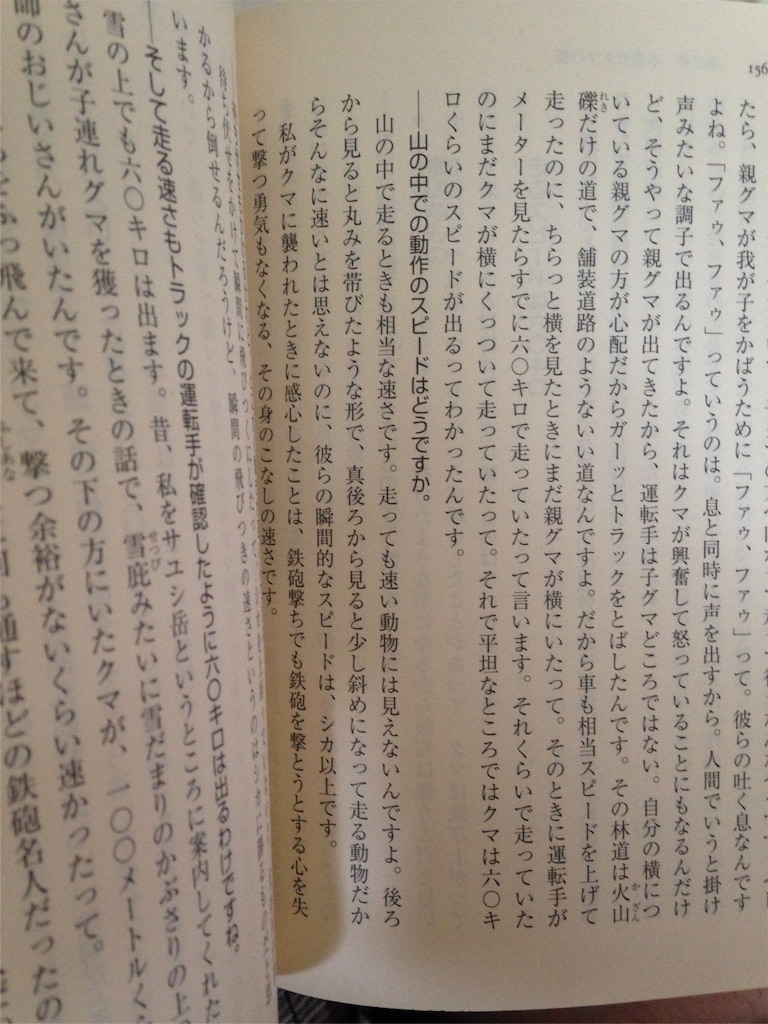 156
たら、親グマが我が子をかばうために「ファゥ、ファゥ」って。彼らの吐く息なんです
よね。「ファゥ、ファゥ」っていうのは。息と同時に声を出すから。人間でいうと掛け
声みたいな調子で出るんですよ。それはクマが興奮して怒っていることにもなるんだけ
ど、そうやって親グマが出てきたから、運転手は子グマどころではない。自分の横につ
いている親グマの方が心配だからガーッとトラックをとばしたんです。その林道は火山
礫だけの道で、舗装道路のようないい道なんですよ。だから車も相当スピードを上げて
走ったのに、ちらっと横を見たときにまだ親グマが横にいたって。そのときに運転手が
メーターを見たらすでに六〇キロで走っていたって言います。それくらいで走っていた
のにまだクマが横にくっついて走っていたって。それで平坦なところではクマは六〇キ
ロくらいのスピードが出るってわかったんです。
──山の中での動作のスピードはどうですか。
山の中で走るときも相当な速さです。走っても速い動物には見えないんですよ。後ろ
から見ると丸みを帯びたような形で、真後ろから見ると少し斜めになって走る動物だか
らそんなに速いとは思えないのに、彼らの瞬間的なスピードは、シカ以上です。
私がクマに襲われたときに感心したことは、鉄砲撃ちでも鉄砲を撃とうとする心を失
って撃つ勇気もなくなる、その身のこなしの速さです。
待ち伏せをかけて瞬間に飛びつく
かるから倒せるんだろうけど、瞬間の飛びつきの速さというのはシカに勝る
います。
──そして走る速さもトラックの運転手が確認したように六〇キロは出るわけですね。
雪の上でも六〇キロは出ます。昔、私をサユシ岳というところに案内してくれた
さんが子連れグマを獲ったときの話で、雪庇みたいに雪だまりのかぶさりの上
です。その下の方にいたクマが、一〇〇メートルく
らをふっ飛んで来て、撃つ余裕がないくらい速かったって。
師のおじいさんがいたんです。
通すほどの鉄砲名人だったの